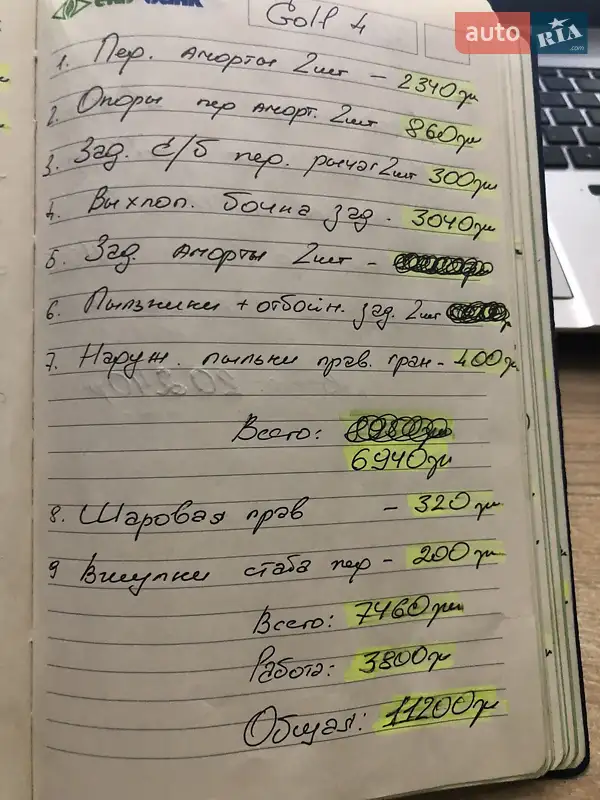 Golf 4
auto RIA.com
1. Пер. аморты 2шт – 2340гр
2. Опоры пер аморт. 2шт 860гр
3. Зад. с/б пер. рычаг 2шт 300гр
4. Выхлоп. бочка зад. 3040гр
5. Зад. аморты 2шт –
6. Пыльники + отбойн. зад. 2шт
7. Наруж. пыльки прав. гран – 400гр
Всего:
6940гр
8. Шаровая прав – 320гр
9 Втулки стаба пер – 200гр
Всего: 7460грн
Работа: 3800гр
Общая: 11200гр